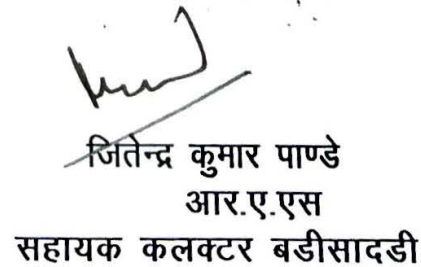 जितेन्द्र कुमार पाण्डे
आर.ए.एस
सहायक कलक्टर बडीसादडी